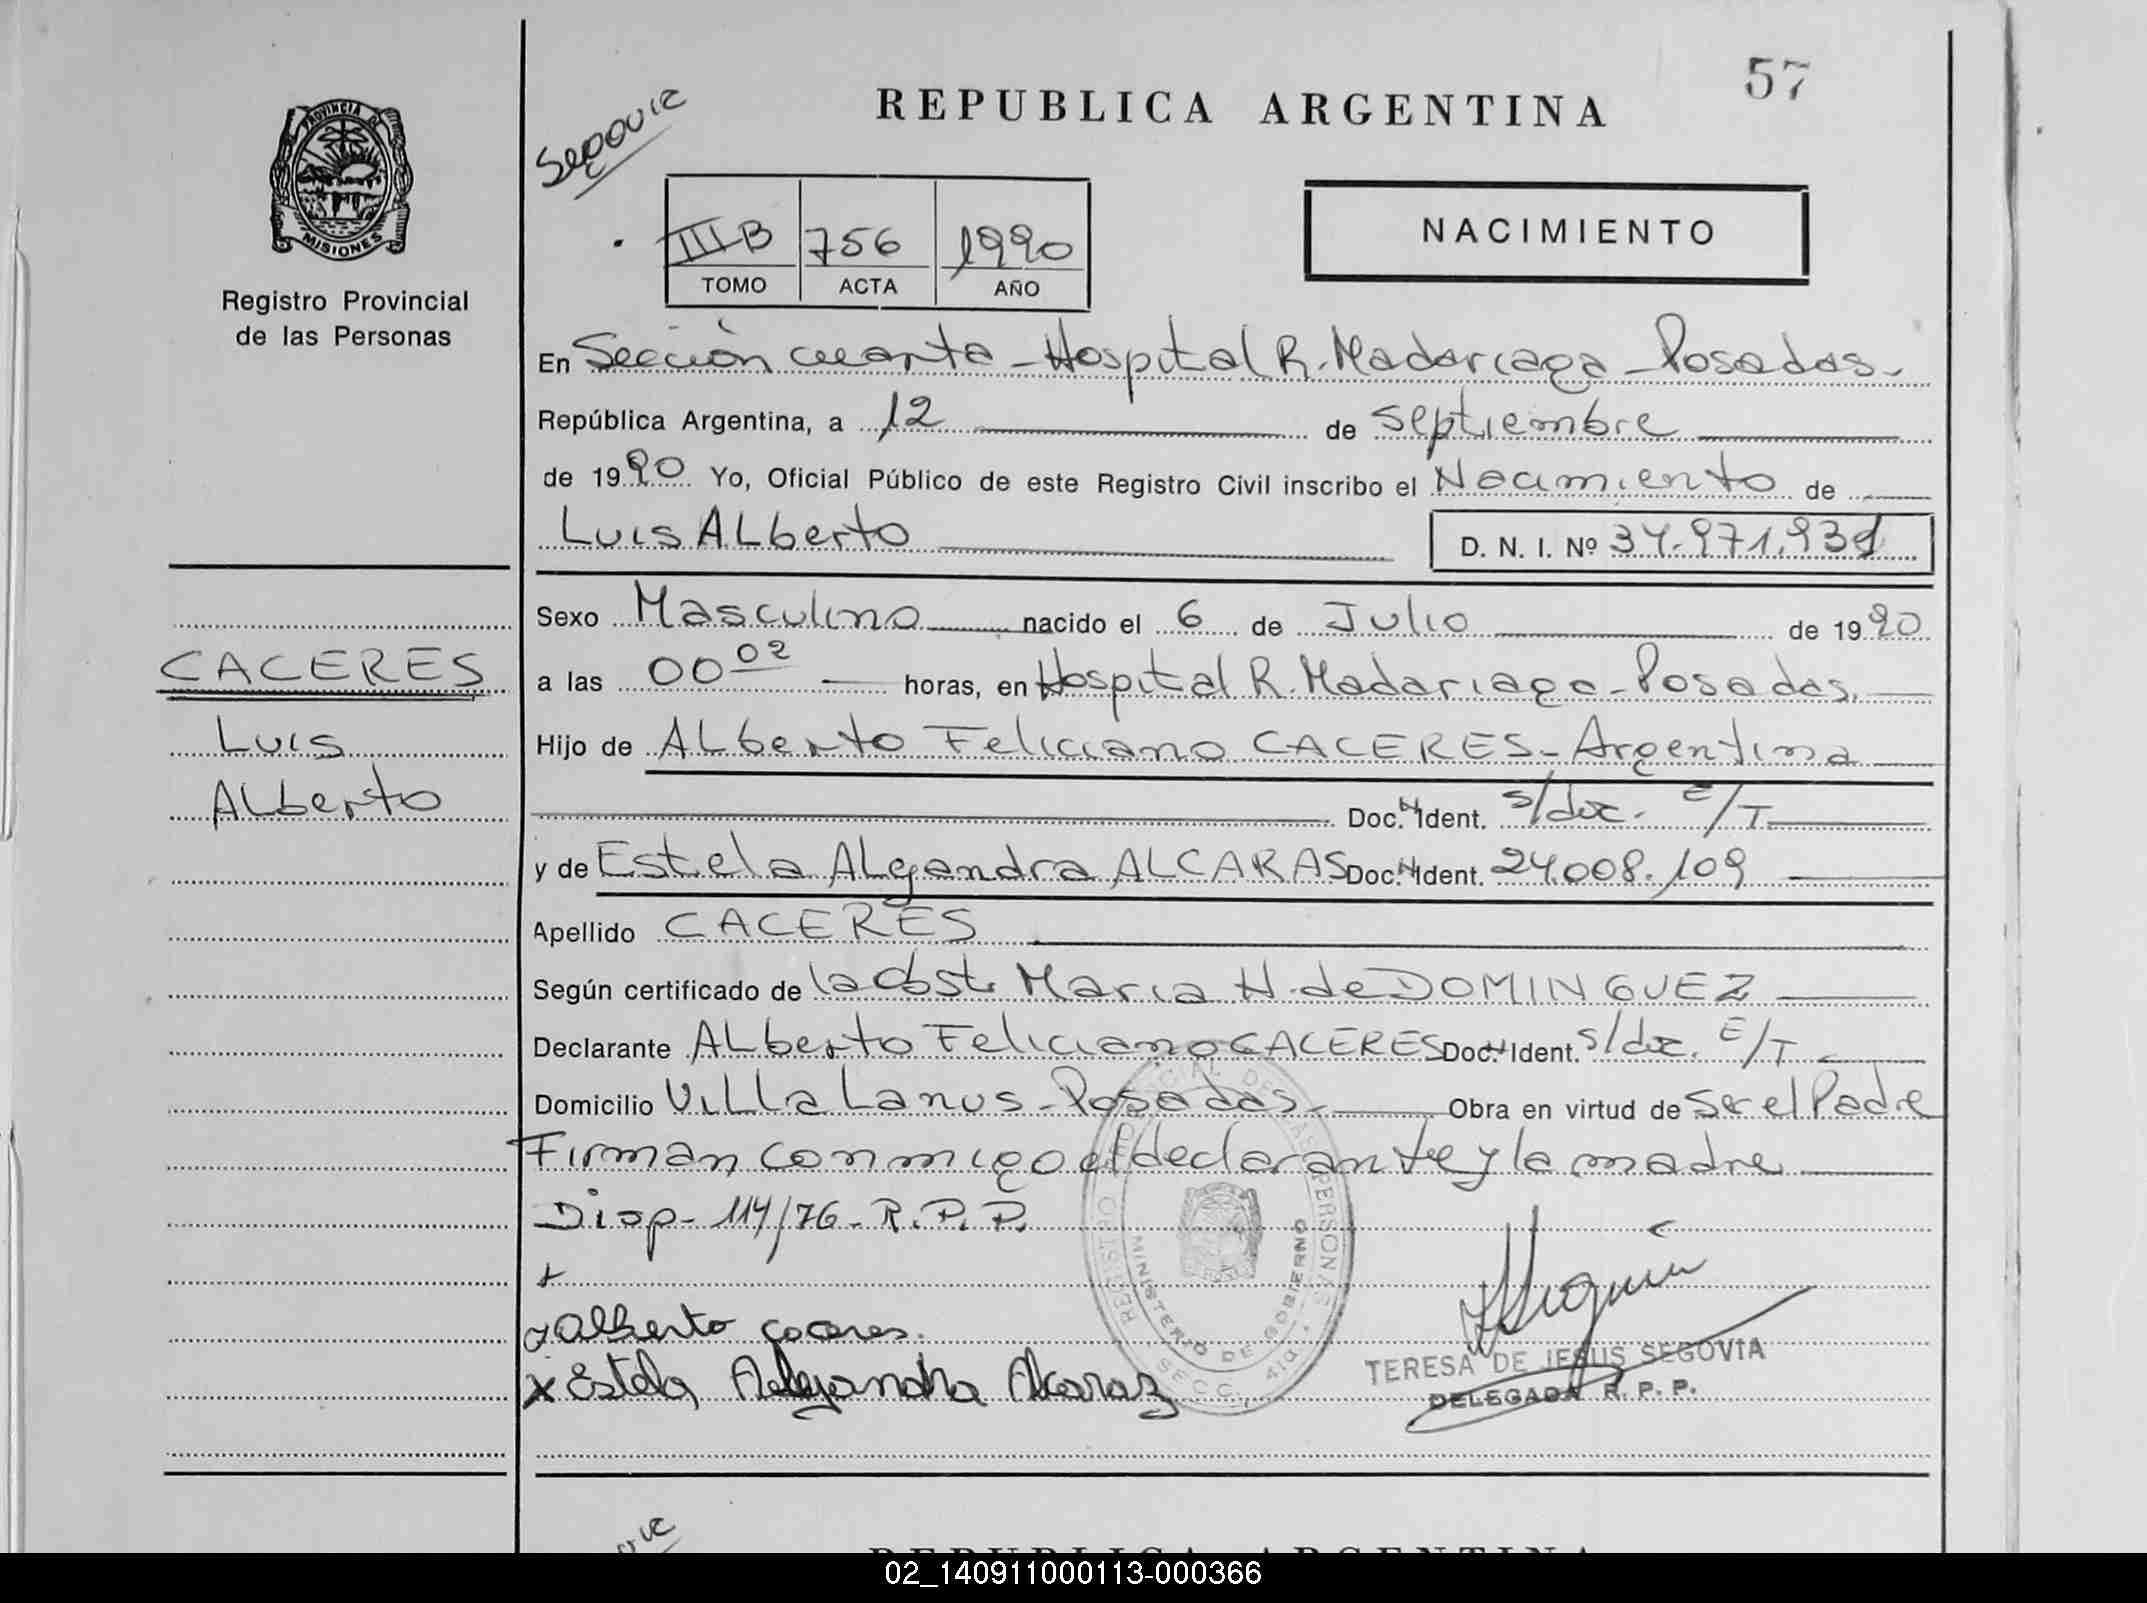 57
Segovia
REPUBLICA ARGENTINA
PROVINCIA DE
MISIONES
Registro Provincial
de las Personas
III B 756 1990
TOMO ACTA AÑO
NACIMIENTO
En Sección cuarta - Hospital R. Madariaga - Posadas -
República Argentina, a 12 de septiembre
de 1990 Yo, Oficial Público de este Registro Civil inscribo el Nacimiento de
Luis ALberto D. N. I. Nº 34.971.931
Sexo Masculino nacido el 6 de Julio de 1990
CACERES
Luis
ALberto
a las 00 02 horas, en Hospital R. Madariaga - Posadas.
Hijo de ALberto Feliciano CACERES - Argentina
Doc. N Ident. s/doc. E/T
y de Estela ALejandra ALCARAS Doc. N Ident. 24.008.109
Apellido CACERES
Según certificado de la Obst. Maria H. de DOMINGUEZ
Declarante ALberto Feliciano CACERES Doc. N Ident. s/doc. E/T -
Domicilio ViLLa Lanus - Posadas - Obra en virtud de Ser el Padre
Firman conmigo el declarante y la madre
Disp - 114/76 - R.P.P.
REGISTRO PROVINCIAL DE LAS PERSONAS
MINISTERIO DE GOBIERNO
SECC. 4ta.
x Alberto caceres.
x Estela Alejandra Alcaraz
TERESA DE JESUS SEGOVIA
DELEGADA R. P. P.
REPUBLICA ARGENTINA
02_140911000113-000366